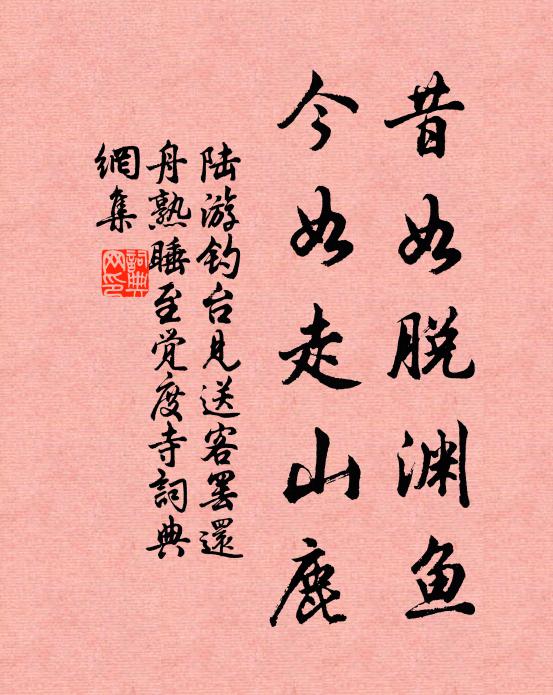 昔如脱渊鱼
今如走山鹿
陆游钓台见送客罢还
舟熟睡至觉度寺詞典
網集
詞典网印